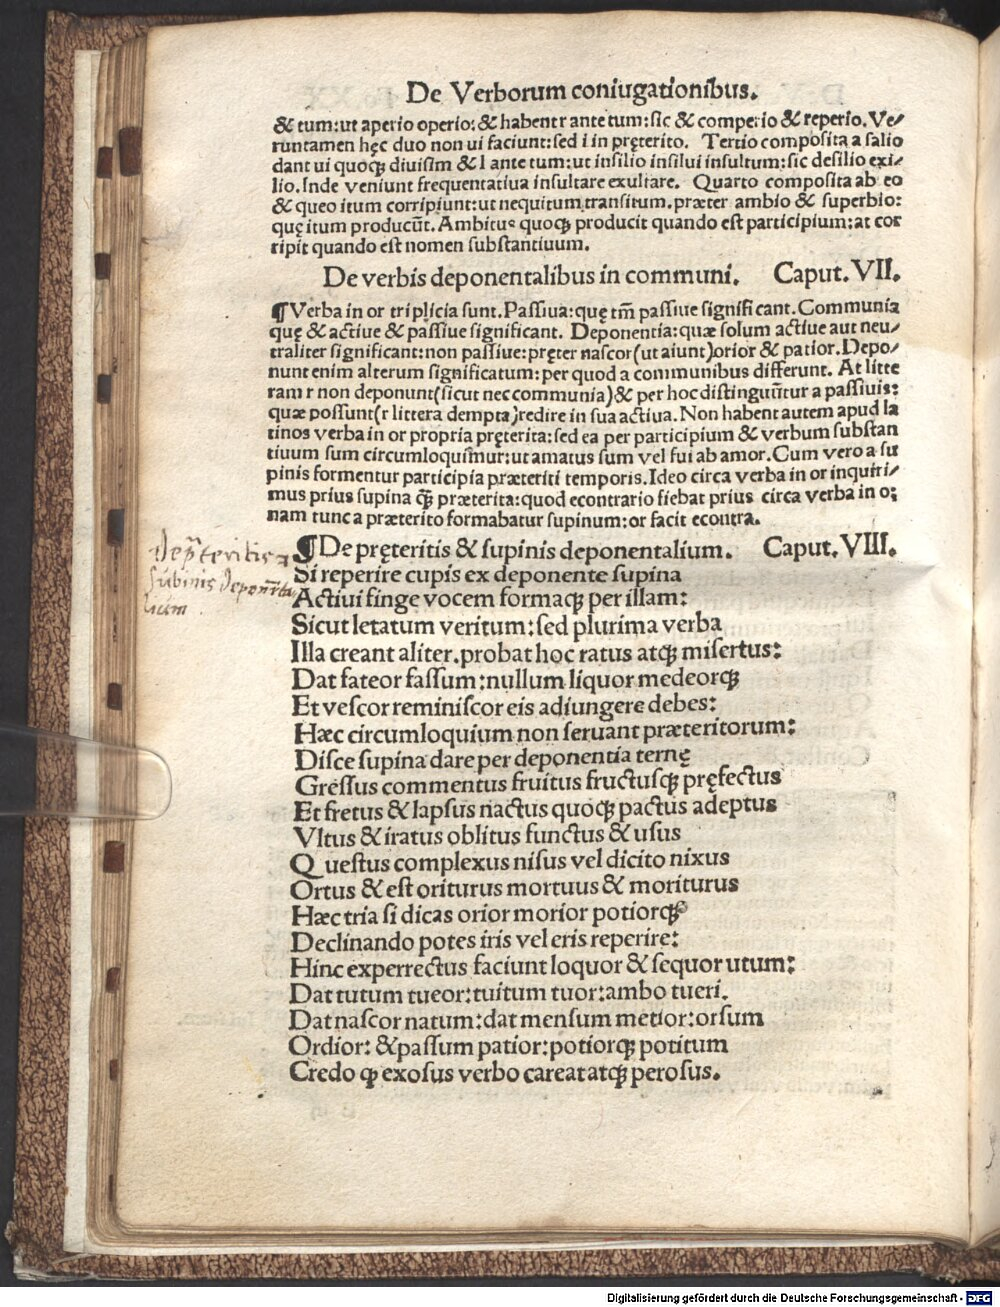 De Verborum coniugationibus.
& tum: ut aperio operio: & habent r ante tum: sic & comperio & reperio. Ve/
runtamen hęc duo non ui faciunt: sed i in pręterito. Tertio composita a salio
dant ui quoqꝫ diuisim & l ante tum: ut insilio insilui insultum: sic desilio exi/
lio. Inde veniunt frequentatiua insultare exultare. Quarto composita ab eo
& queo itum corripiunt: ut nequitum transitum. præter ambio & superbio:
quę itum producūt. Ambitus quoqꝫ producit quando est participium: at cor
ripit quando est nomen substantiuum.
De verbis deponentalibus in communi. Caput. VII.
¶ Verba in or triplicia sunt. Passiua: quę tm̄ passiue significant. Communia
quę & actiue & passiue significant. Deponentia: quæ solum actiue aut neu/
traliter significant: non passiue: pręter nascor (ut aiunt) orior & patior. Depo/
nunt enim alterum significatum: per quod a communibus differunt. At litte
ram r non deponunt (sicut nec communia) & per hoc distinguūtur a passiuis:
quæ possunt (r littera dempta) redire in sua actiua. Non habent autem apud la
tinos verba in or propria pręterita: sed ea per participium & verbum substan
tiuum sum circumloquimur: ut amatus sum vel fui ab amor. Cum vero a su
pinis formentur participia præteriti temporis. Ideo circa verba in or inquiri/
mus prius supina qꝫ̄ præterita: quod econtrario fiebat prius circa verba in o:
nam tunc a præterito formabatur supinum: or facit econtra.
¶ De pręteritis & supinis deponentalium. Caput. VIII.
Si reperire cupis ex deponente supina
Actiui finge vocem formaqꝫ per illam:
Sicut letatum veritum: sed plurima verba
Illa creant aliter. probat hoc ratus atqꝫ misertus:
Dat fateor fassum: nullum liquor medeorqꝫ
Et vescor reminiscor eis adiungere debes:
Hæc circumloquium non seruant præteritorum:
Disce supina dare per deponentia ternę
Gressus commentus fruitus fructusqꝫ pręfectus
Et fretus & lapsus nactus quoqꝫ pactus adeptus
Vltus & iratus oblitus functus & usus
Questus complexus nisus vel dicito nixus
Ortus & est oriturus mortuus & moriturus
Hæc tria si dicas orior morior potiorqꝫ
Declinando potes iris vel eris reperire:
Hinc experrectus faciunt loquor & sequor utum:
Dat tutum tueor: tuitum tuor: ambo tueri.
Dat nascor natum: dat mensum metior: orsum
Ordior: & passum patior: potiorqꝫ potitum
Credo ꝙ exosus verbo careat atqꝫ perosus.
De p̄teritis &
subinis deponēta
lium
Digitalisierung gefördert durch die Deutsche Forschungsgemeinschaft - DFG